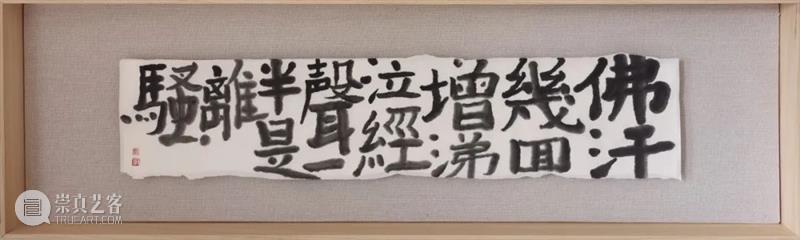 佛汗
幾回
增涕
泣經
聲一
半是
離
騷
崇真艺客
TRUEART.COM